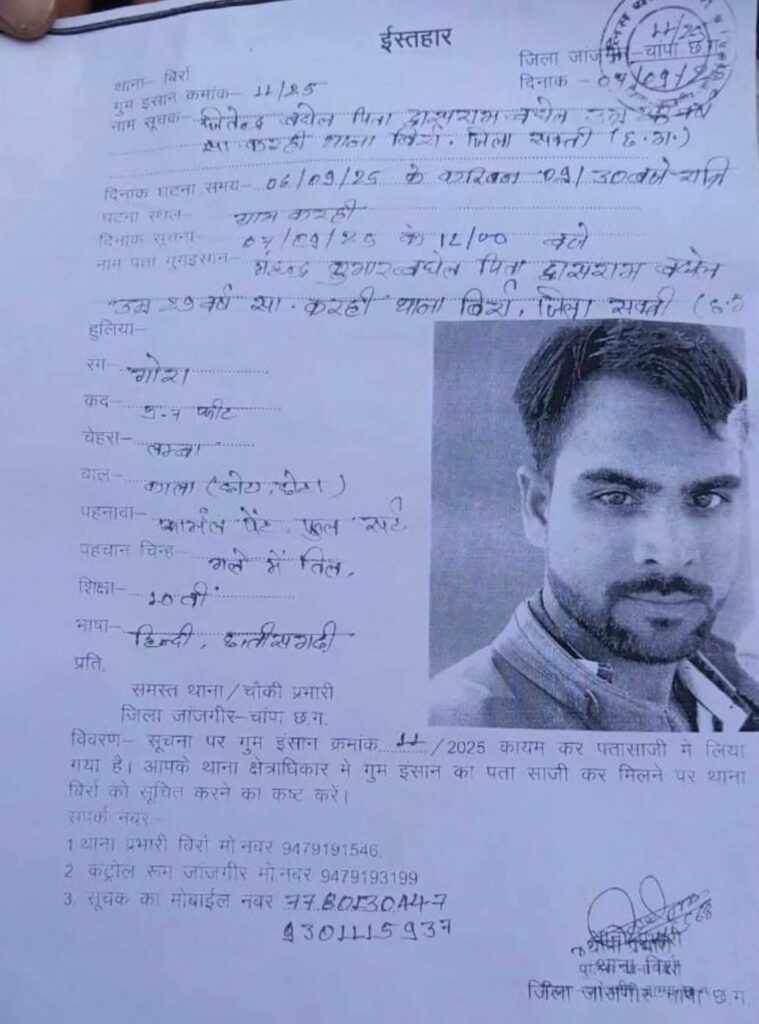 ईस्तहार
जिला जांजगीर-चांपा छ.ग.
दिनाक - 07/09/2
11/25
थाना- बिर्रा
गुम इंसान क्रमांक- 11/25
नाम सूचक- जितेन्द्र बघेल पिता द्वासराम बघेल उम्र वर्ष
सा करही थाना बिर्रा. जिला सक्ती (छ.ग.)
दिनाक घटना समय- 06/09/25 के करिबन 09/30 बजे रात्रि
घटना स्थल- ग्राम करही
दिनाक सूचना- 07/09/25 के 12/00 बजे
नाम पता गुमइसान- महेन्द्र कुमार बघेल पिता द्वासराम बघेल
उम्र 29 वर्ष सा. करही थाना बिर्रा, जिला सक्ती (छ.ग
हुलिया-
रंग- गोरा
कद- 5.7 फीट
चेहरा- लम्बा
बाल- काला (छोटा, छोटा)
पहनावा- फार्मल पेंट, फुल सर्ट
पहचान चिन्ह- गले में तिल,
शिक्षा- 10 वीं
भाषा- हिन्दी, छत्तीसगढी
प्रति,
समस्त थाना/चौकी प्रभारी
जिला जांजगीर-चांपा छ.ग.
विवरण- सूचना पर गुम इंसान क्रमांक 11 /2025 कायम कर पतासाजी मे लिया
गया है। आपके थाना क्षेत्राधिकार मे गुम इंसान का पता साजी कर मिलने पर थाना
बिर्रा को सूचित करने का कष्ट करें।
सपर्क नंबर-
1 थाना प्रभारी बिर्रा मो.नंबर 9479191546,
2 कंट्रोल रूम जांजगीर मो.नंबर 9479193199
3. सूचक का मोबाईल नंबर
9301115937
थाना प्रभारी
थाना बिर्रा
जिला जांजगीर-चांपा छ.ग.